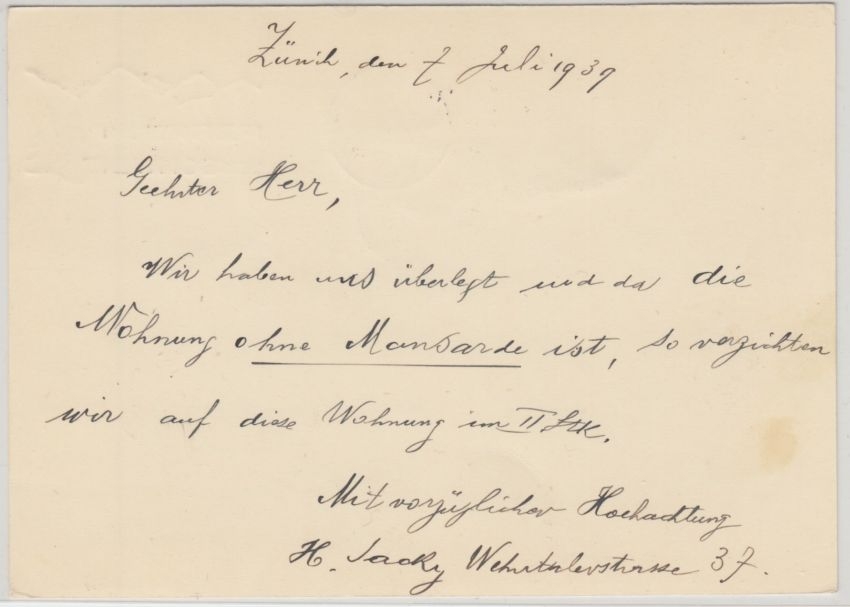 Zürich, den 7 Juli 1939
Geehrter Herr,
Wir haben uns überlegt und da die
Wohnung ohne Mansarde ist, so verzichten
wir auf diese Wohnung im II Stk.
Mit vorzüglicher Hochachtung
H. Jacky Wehntalerstrasse 37.